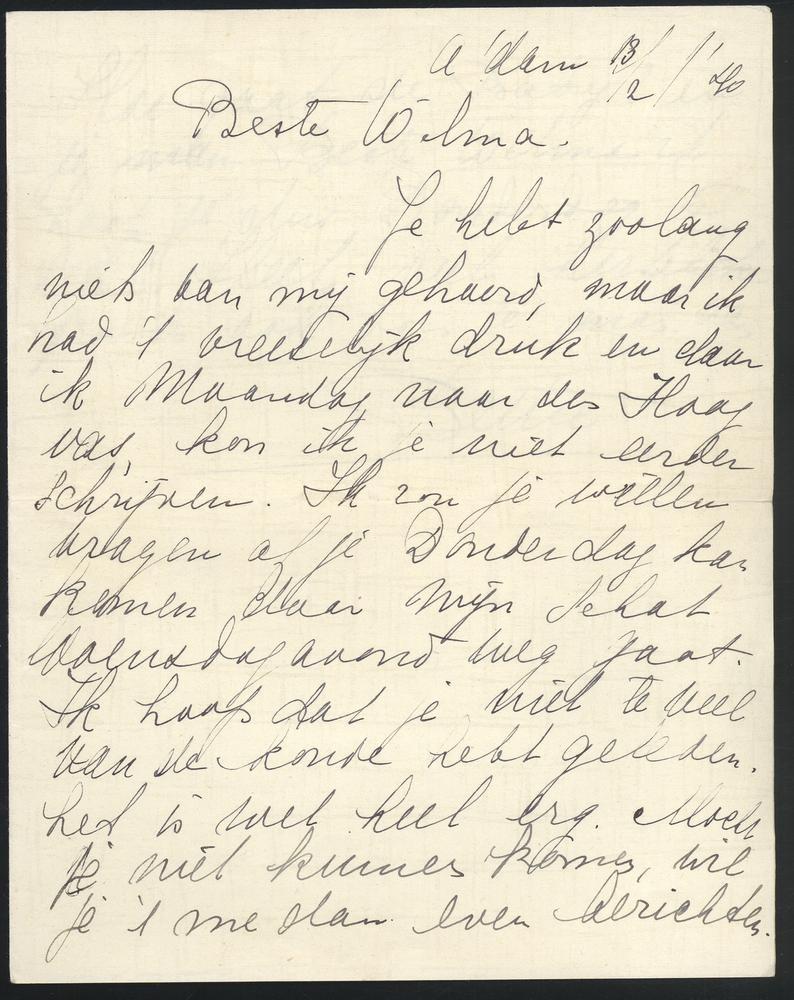 A'dam 13/2/'40
Beste Wilma.
Je hebt zoolang
niets van mij gehoord, maar ik
had 't vreeselijk druk en daar
ik Maandag naar den Haag
was, kon ik je niet eerder
schrijven. Ik zou je willen
vragen of je Donderdag kan
komen daar mijn schat
Woensdagavond weg gaat.
Ik hoop dat je niet te veel
van de koude hebt geleden.
het is wel heel erg. Mocht
je niet kunnen komen, wil
je 't me dan even berichten.